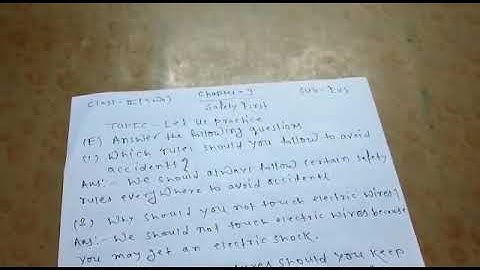 Class - II (Two) Chapter - 9 Sub - EVS
Safety First
Topic - Let us practice
(E) Answer the following questions
(1) Which rules should you follow to avoid
accidents?
Ans:- We should always follow certain safety
rules everywhere to avoid accidents
(2) Why should you not touch electric wires?
Ans:- We should not touch electric wires because
you may get an electric shock.
should you keep